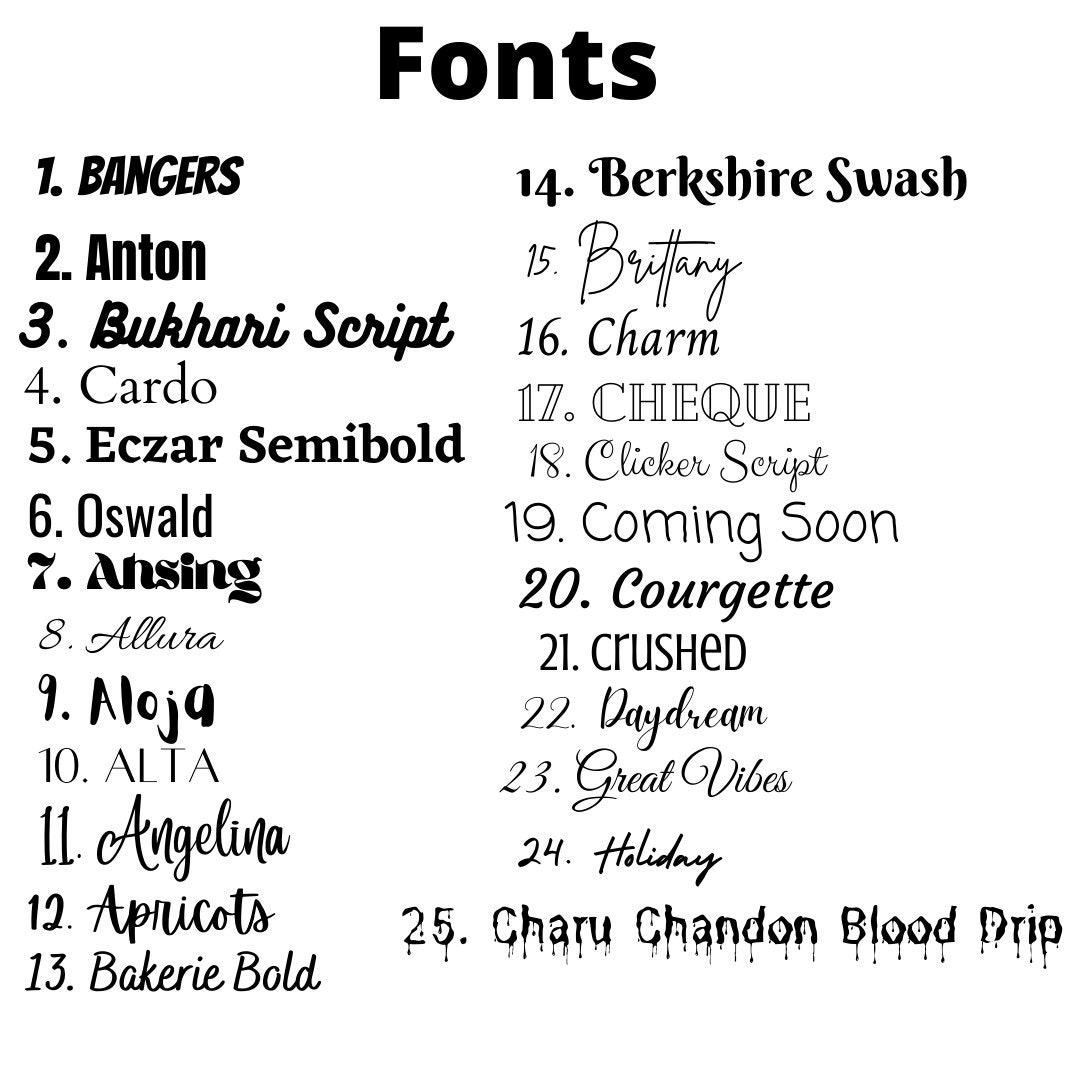 Fonts
1. BANGERS
2. Anton
3. Bukhari Script
4. Cardo
5. Eczar Semibold
6. Oswald
7. Ahsing
8. Allura
9. Aloja
10. ALTA
11. Angelina
12. Apricots
13. Bakerie Bold
14. Berkshire Swash
15. Brittany
16. Charm
17. CHEQUE
18. Clicker Script
19. Coming Soon
20. Courgette
21. Crushed
22. Daydream
23. Great Vibes
24. Holiday
25. Charu Chandon Blood Drip